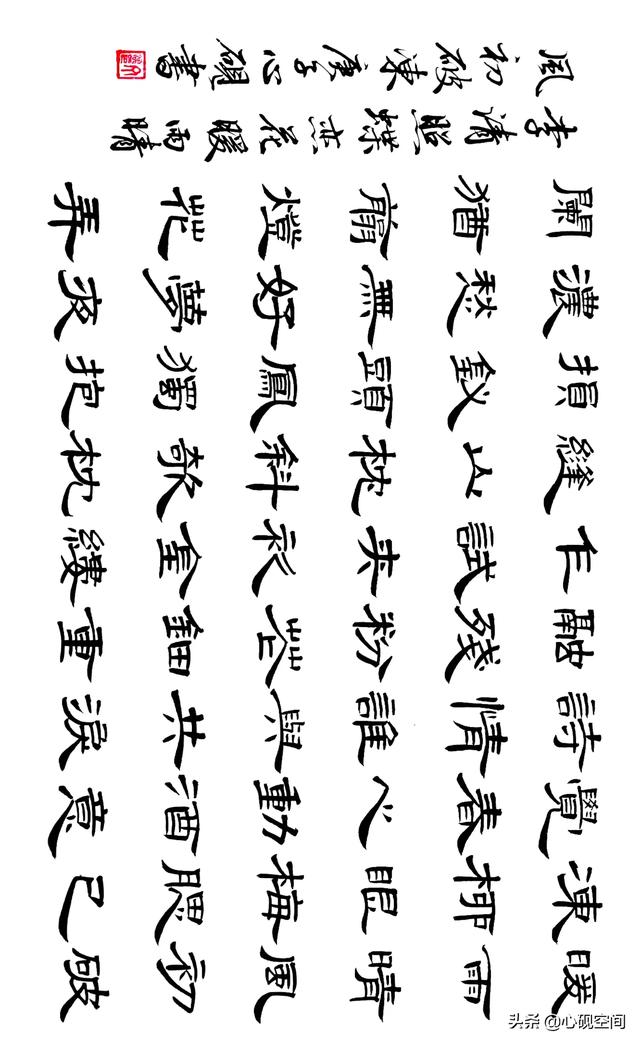 暖雨晴風初破
凍柳眼梅腮已
覺春心動酒意
詩情誰與共淚
融殘粉花鈿重
乍試夾衫金縷
縫山枕斜欹枕
損釵頭鳳獨抱
濃愁無好夢夜
闌猶剪燈花弄
李清照蝶恋花暖雨晴
風初破凍庚子心硯書
头条 @心砚空间